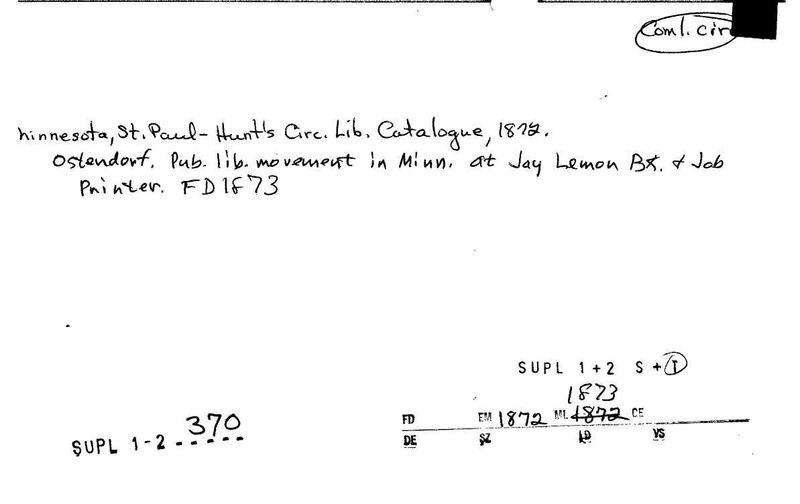 Coml. circ
Minnesota, St. Paul - Hunt's Circ. Lib. Catalogue, 1872.
Ostendorf. Pub. lib. movement in Minn. at Jay Lemon Bk. & Job
Printer. FD 1873
SUPL 1+2 S + I
1873
FD EM 1872 ML 1872 CE
DE SZ LD VS
SUPL 1-2 370